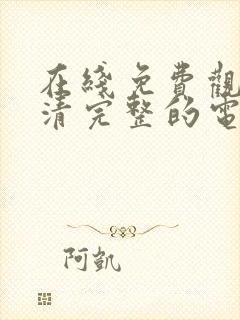 在綫免費觀
清完整的電
阿凱